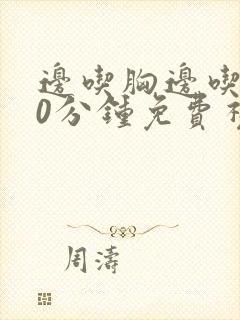 邊喫胸邊喫
0分鍾免費
周濤